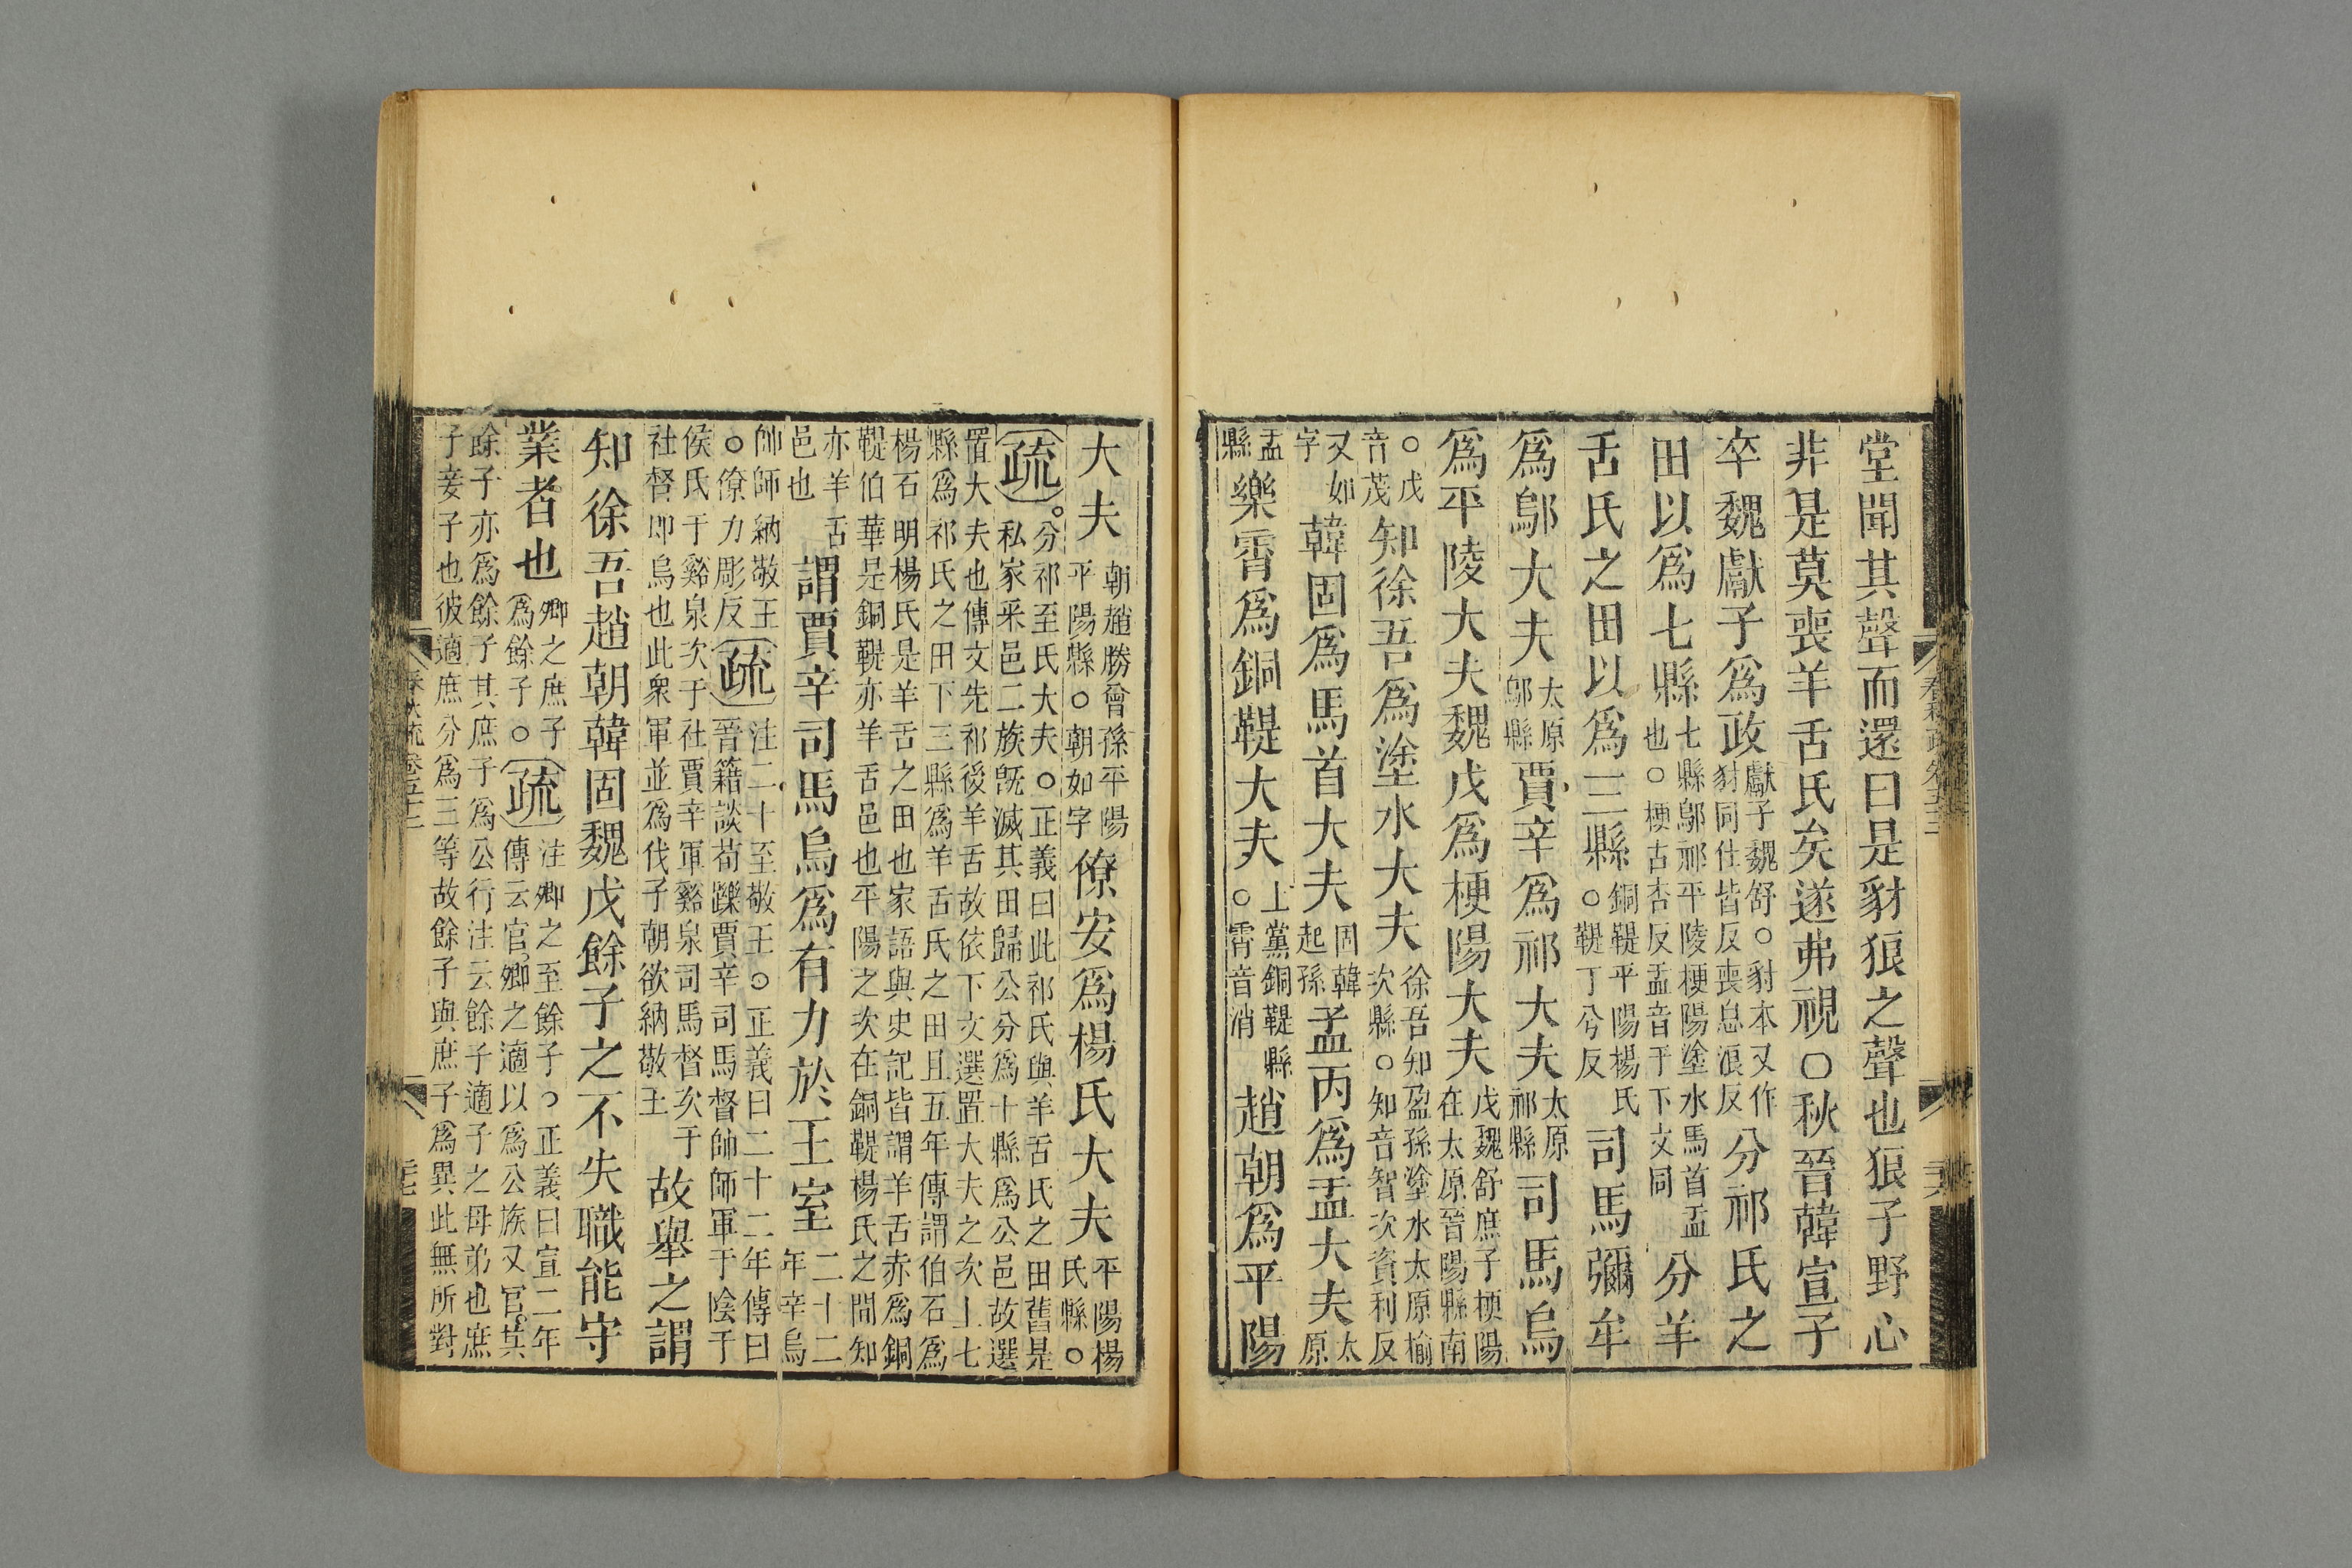 堂聞其聲而還曰是豺狼之聲也狼子野心
非是莫喪羊舌氏矣遂弗視○秋晉韓宣子
卒魏獻子爲政獻子魏舒○豺本又作豺同仕皆反喪息浪反分祁氏之
田以爲七縣七縣鄔祁平陵梗陽塗水馬首盂也○梗古杏反盂音于下文同分羊
舌氏之田以爲三縣銅鞮平陽楊氏○鞮丁兮反司馬彌牟
爲鄔大夫太原鄔縣賈辛爲祁大夫太原祁縣司馬烏
爲平陵大夫魏戊爲梗陽大夫戊魏舒庶子梗陽在太原晉陽縣南
○戊音茂知徐吾爲塗水大夫徐吾知盈孫塗水太原榆次縣○知音智次資利反
又如字韓固爲馬首大夫固韓起孫孟丙爲盂大夫太原
盂縣樂霄爲銅鞮大夫上黨銅鞮縣○霄音消趙朝爲平陽
大夫朝趙勝曾孫平陽平陽縣○朝如字僚安爲楊氏大夫平陽楊氏縣○
疏分祁至氏大夫○正義曰此祁氏與羊舌氏之田舊是
私家采邑二族旣滅其田歸公分爲十縣爲公邑故選
置大夫也傳文先祁後羊舌故依下文選置大夫之次上七
縣爲祁氏之田下三縣爲羊舌氏之田且五年傳謂伯石爲
楊石明楊氏是羊舌之田也家語與史記皆謂羊舌赤爲銅
鞮伯華是銅鞮亦羊舌邑也平陽之次在銅鞮楊氏之間知
亦羊舌邑也謂賈辛司馬烏爲有力於王室二十二年辛烏
帥師納敬王○僚力彫反疏注二十至敬王○正義曰二十二年傳曰
晉籍談荀躒賈辛司馬督帥師軍于陰于
侯氏于谿泉次于社賈辛軍谿泉司馬督次于
社督即烏也此衆軍並爲伐子朝欲納敬王故舉之謂
知徐吾趙朝韓固魏戊餘子之不失職能守
業者也卿之庶子爲餘子○疏注卿之至餘子○正義曰宣二年
傳云官卿之適以爲公族又官其
餘子亦爲餘子其庶子爲公行注云餘子適子之母弟也庶
子妾子也彼適庶分爲三等故餘子與庶子爲異此無所對